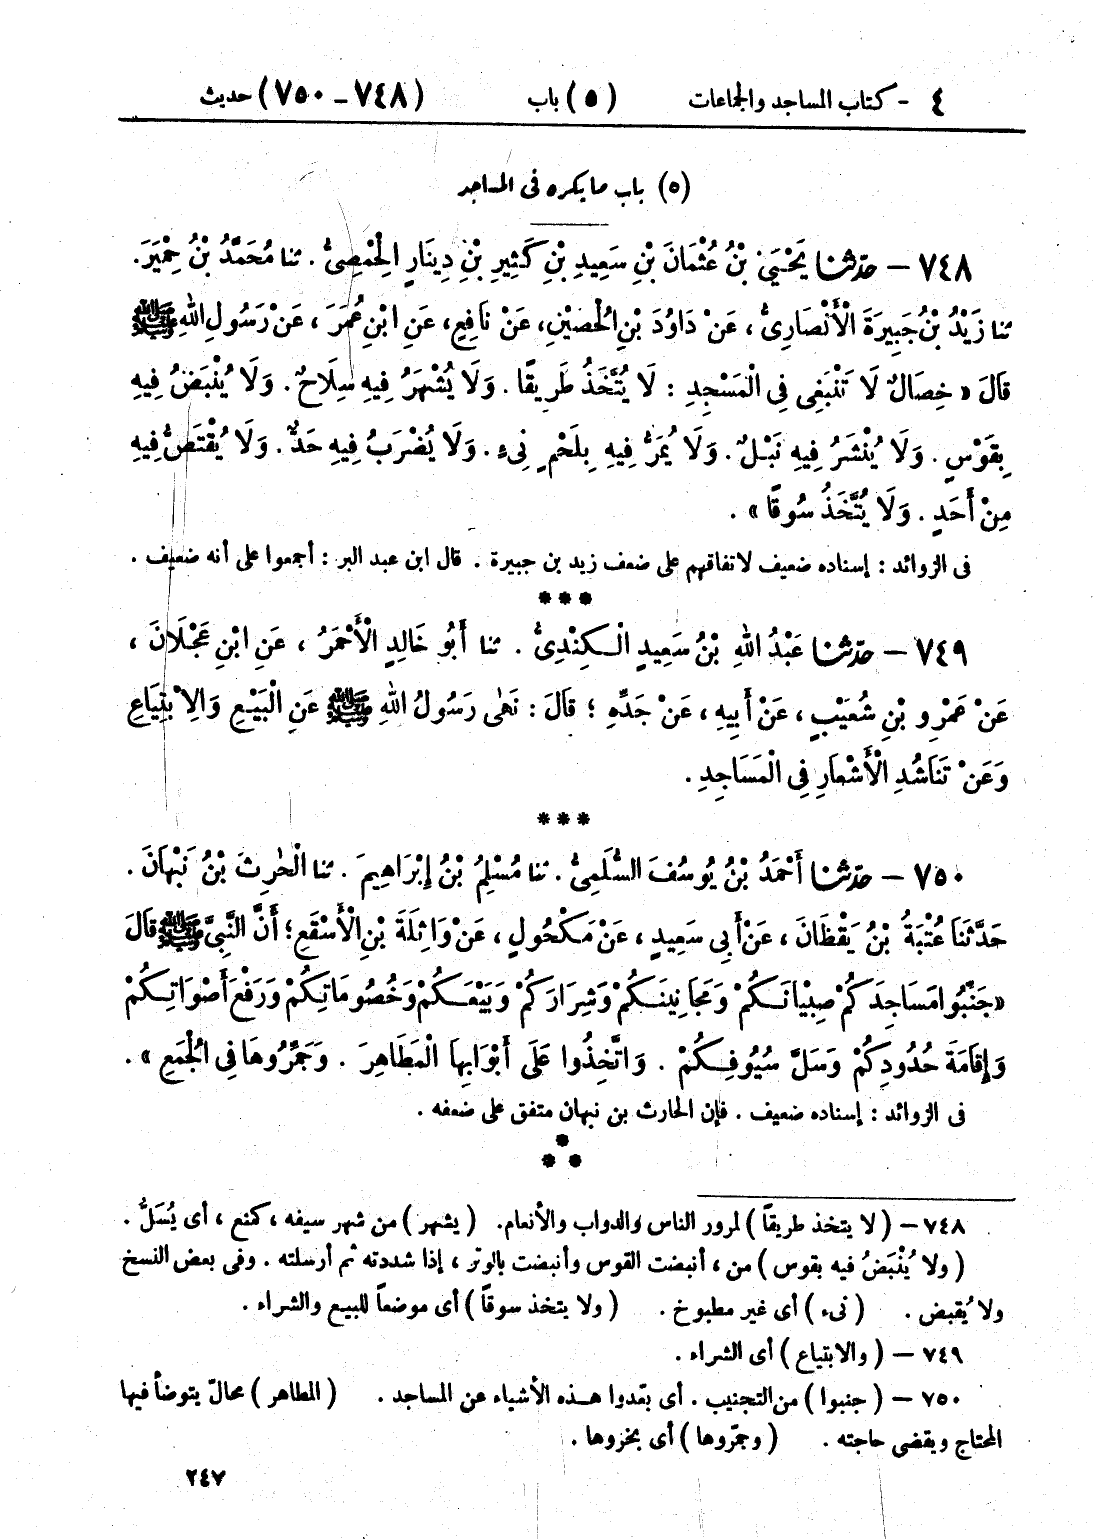 ٤ - كتاب المساجد والجماعات (٥) باب (٧٤٨ - ٧٥٠) حديث
(٥) باب ما يكره فى المساجد
٧٤٨ – حدّثنا يَحْيَىٰ بْنُ عُثْمَانَ بْنِ سَعِيدِ بْنِ كَثِيرِ بْنِ دِينَارٍ الْحِمْصِىُّ . ثنا مُحَمَّدُ بْنُ حِمْيَرَ.
ثنا زَيْدُ بْنُ جَبِيرَةَ الْأَنْصَارِىُّ ، عَنْ دَاوُدَ بْنِ الْحُصَيْنِ، عَنْ نَافِعٍ، عَنِ ابْنِ عُمَرَ ، عَنْ رَسُولِ اللهِ ﷺ
قَالَ « خِصَالٌ لَا تَنْبَغِى فِى الْمَسْجِدِ : لَا يُتَّخَذُ طَرِيقًا . وَلَا يُشْهَرُ فِيهِ سِلَاحٌ . وَلَا يُنْبَضُ فِيهِ
بِقَوْسٍ . وَلَا يُنْشَرُ فِيهِ نَبْلٌ . وَلَا يُمَرُّ فِيهِ بِلَحْمٍ نِىءٍ . وَلَا يُضْرَبُ فِيهِ حَدٌّ . وَلَا يُقْتَصُّ فِيهِ
مِنْ أَحَدٍ . وَلَا يُتَّخَذُ سُوقًا » .
فى الزوائد : إسناده ضعيف لاتفاقهم على ضعف زيد بن جبيرة . قال ابن عبد البر : أجمعوا على أنه ضعيف .
***
٧٤٩ – حدّثنا عَبْدُ اللهِ بْنُ سَعِيدٍ الْكِنْدِىُّ . ثنا أَبُو خَالِدٍ الْأَحْمَرُ ، عَنِ ابْنِ عَجْلَانَ ،
عَنْ عَمْرِو بْنِ شُعَيْبٍ ، عَنْ أَبِيهِ ، عَنْ جَدِّهِ ؛ قَالَ : نَهَى رَسُولُ اللهِ ﷺ عَنِ الْبَيْعِ وَالِابْتِيَاعِ
وَعَنْ تَنَاشُدِ الْأَشْعَارِ فِى الْمَسَاجِدِ .
***
٧٥٠ – حدّثنا أَحْمَدُ بْنُ يُوسُفَ السُّلَمِىُّ . ثنا مُسْلِمُ بْنُ إِبْرَاهِيمَ . ثنا الْحٰرِثُ بْنُ نَبْهَانَ .
حَدَّثَنَا عُتْبَةُ بْنُ يَقْظَانَ ، عَنْ أَبِى سَعِيدٍ ، عَنْ مَكْحُولٍ ، عَنْ وَاثِلَةَ بْنِ الْأَسْقَعِ ؛ أَنَّ النَّبِىَّ ﷺ قَالَ
« جَنِّبُوا مَسَاجِدَكُمْ صِبْيَانَكُمْ وَمَجَانِينَكُمْ وَشِرَارَكُمْ وَبَيْعَكُمْ وَخُصُومَاتِكُمْ وَرَفْعَ أَصْوَاتِكُمْ
وَإِقَامَةَ حُدُودِكُمْ وَسَلَّ سُيُوفِكُمْ . وَاتَّخِذُوا عَلَى أَبْوَابِهَا الْمَطَاهِرَ . وَجَمِّرُوهَا فِى الْجُمَعِ » .
فى الزوائد : إسناده ضعيف . فإن الحارث بن نبهان متفق على ضعفه .
*
* *
٧٤٨ – ( لا يتخذ طريقاً ) لمرور الناس والدواب والأنعام . ( يشهر ) من شهر سيفه ، كمنع ، أى يُسَلُّ .
( ولا يُنْبَضُ فيه بقوس ) من ، أنبضت القوس وأنبضت بالوتر ، إذا شددته ثم أرسلته . وفى بعض النسخ
ولا يُقبض . ( نىء ) أى غير مطبوخ . ( ولا يتخذ سوقاً ) أى موضعاً للبيع والشراء .
٧٤٩ – ( والابتياع ) أى الشراء .
٧٥٠ – ( جنبوا ) من التجنيب . أى بعّدوا هذه الأشياء عن المساجد . ( المطاهر ) محالّ يتوضأ فيها
المحتاج ويقضى حاجته . ( وجمّروها ) أى بخروها .
٢٤٧